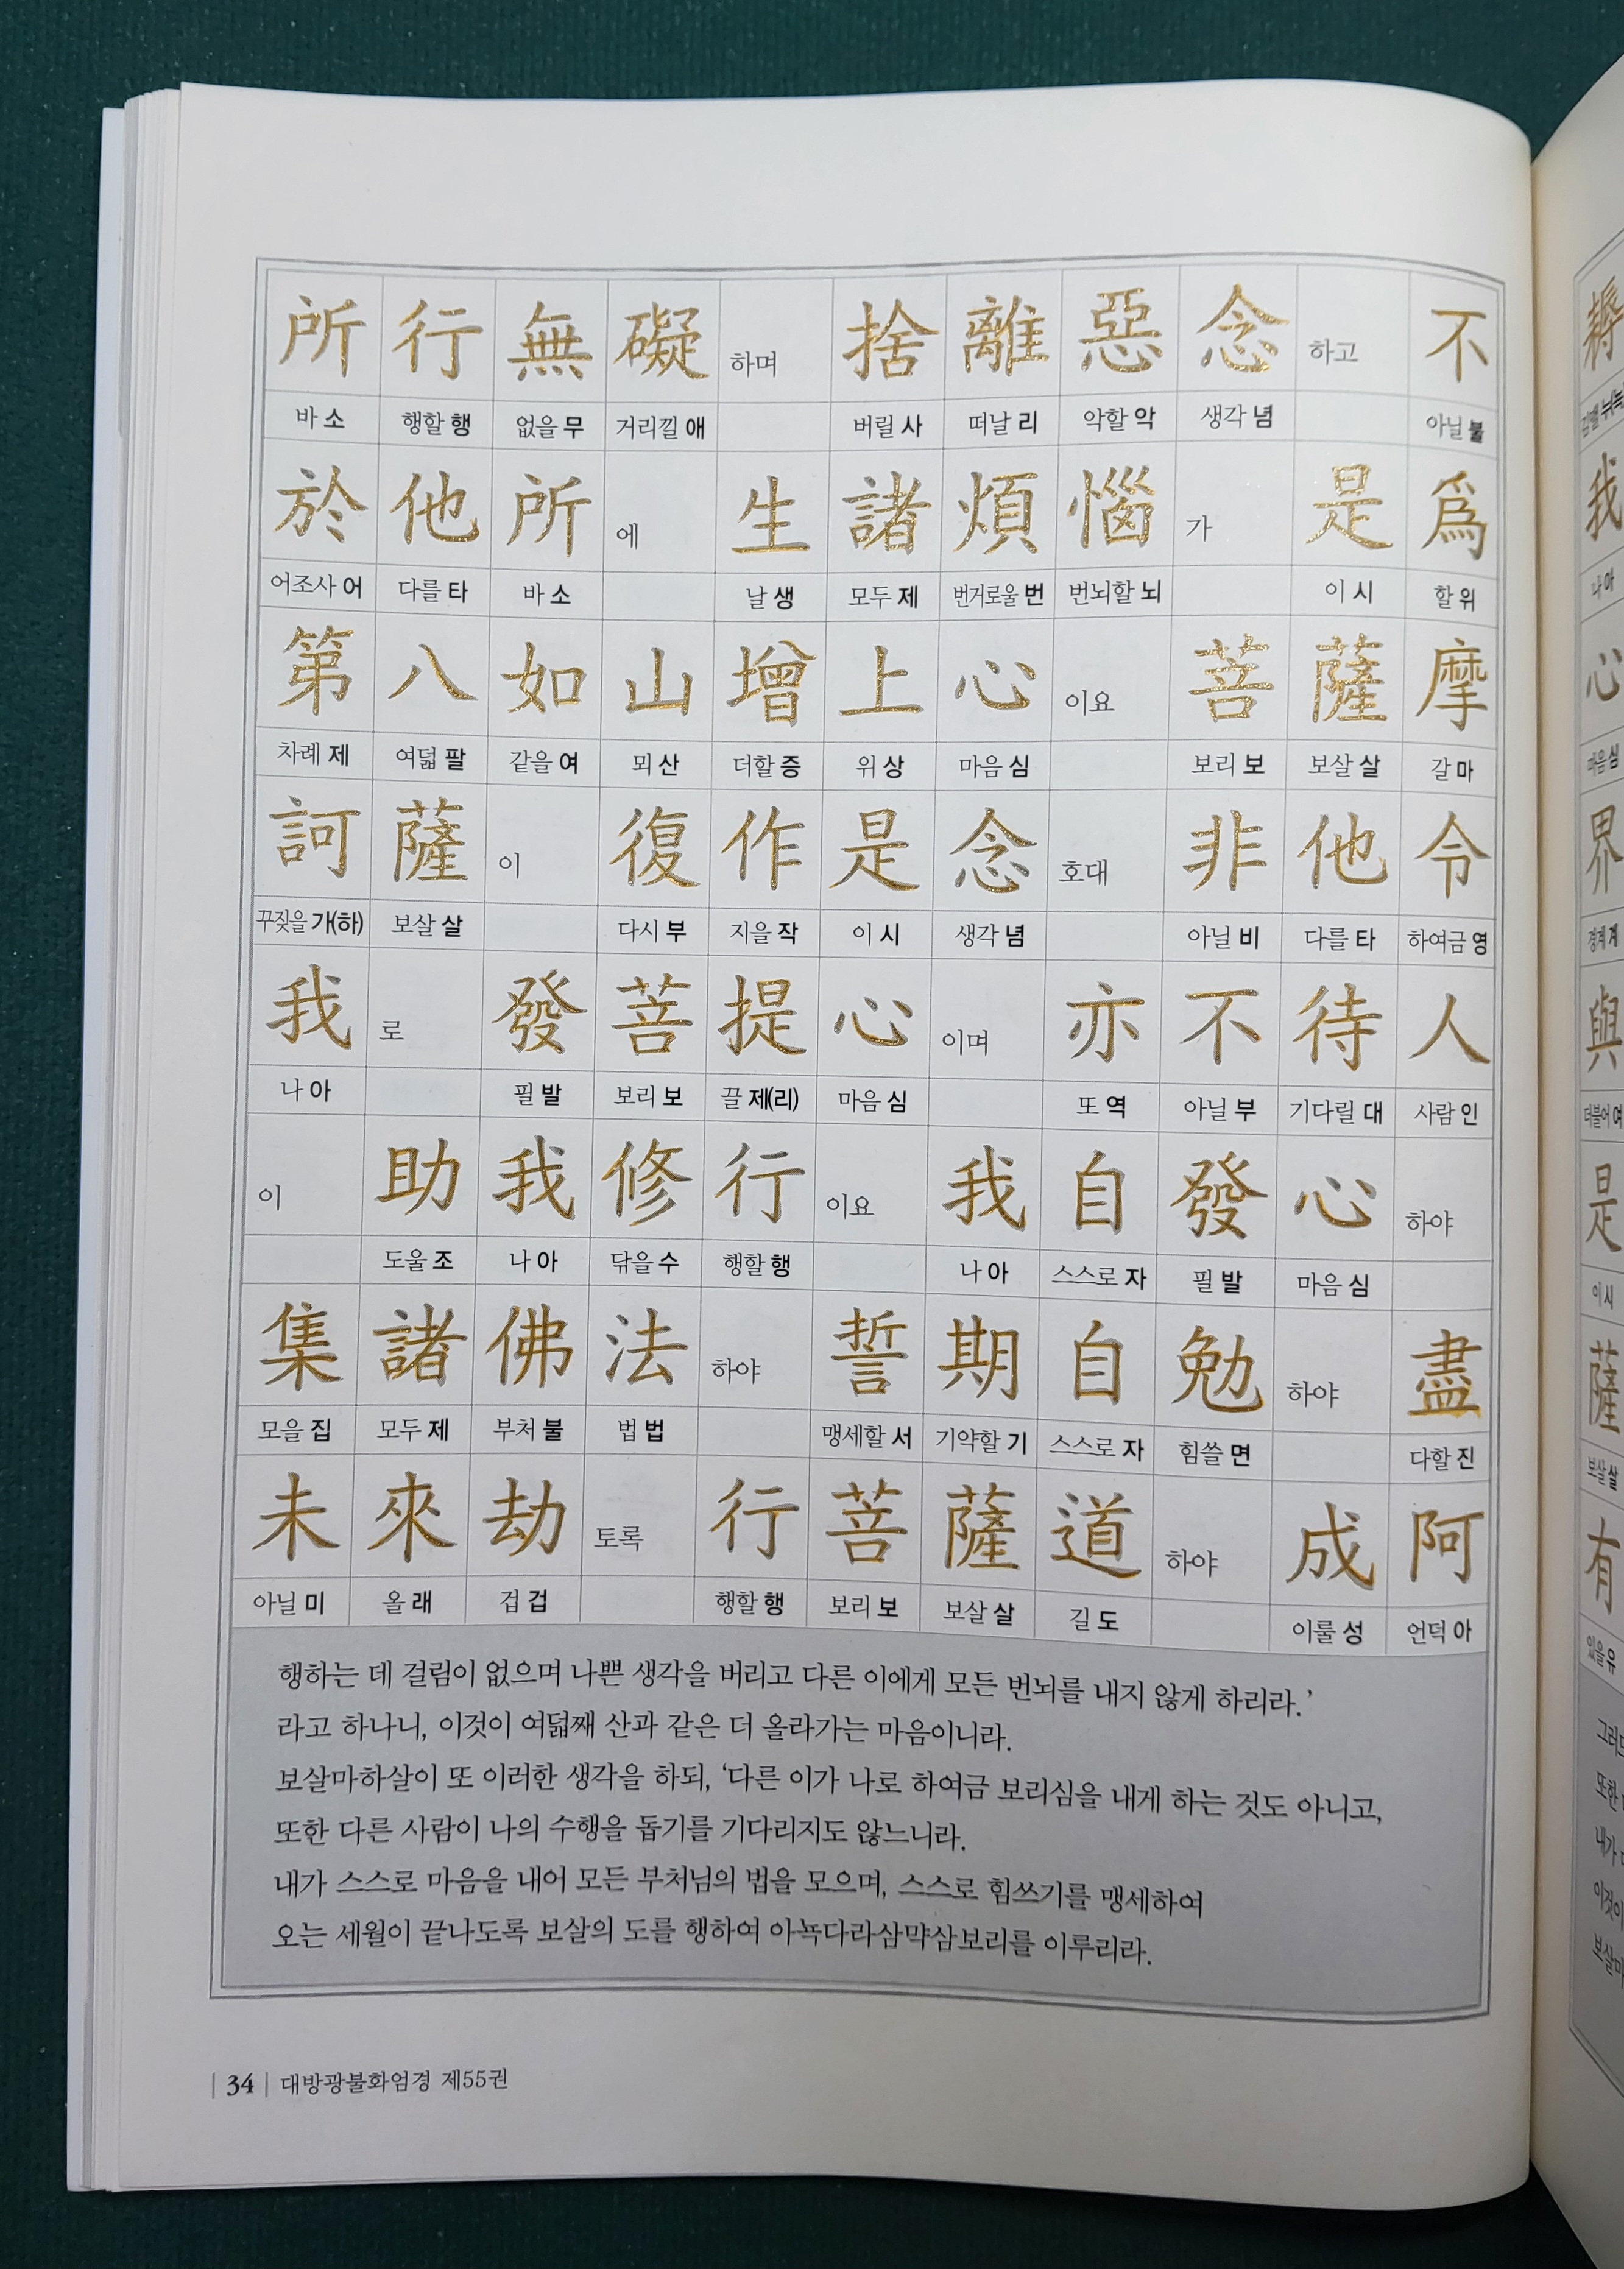 所 行 無 礙 하며 捨 離 惡 念 하고 不
바 소 행할 행 없을 무 거리낄 애 버릴 사 떠날 리 악할 악 생각 념 아닐 불
於 他 所 에 生 諸 煩 惱 가 是 爲
어조사 어 다를 타 바 소 날 생 모두 제 번거로울 번 번뇌할 뇌 이 시 할 위
第 八 如 山 增 上 心 이요 菩 薩 摩
차례 제 여덟 팔 같을 여 뫼 산 더할 증 위 상 마음 심 보리 보 보살 살 갈 마
訶 薩 이 復 作 是 念 호대 非 他 令
꾸짖을 가(하) 보살 살 다시 부 지을 작 이 시 생각 념 아닐 비 다를 타 하여금 영
我 로 發 菩 提 心 이며 亦 不 待 人
나 아 필 발 보리 보 끌 제(리) 마음 심 또 역 아닐 부 기다릴 대 사람 인
이 助 我 修 行 이요 我 自 發 心 하야
도울 조 나 아 닦을 수 행할 행 나 아 스스로 자 필 발 마음 심
集 諸 佛 法 하야 誓 期 自 勉 하야 盡
모을 집 모두 제 부처 불 법 법 맹세할 서 기약할 기 스스로 자 힘쓸 면 다할 진
未 來 劫 토록 行 菩 薩 道 하야 成 阿
아닐 미 올 래 겁 겁 행할 행 보리 보 보살 살 길 도 이룰 성 언덕 아
행하는 데 걸림이 없으며 나쁜 생각을 버리고 다른 이에게 모든 번뇌를 내지 않게 하리라.’
라고 하나니, 이것이 여덟째 산과 같은 더 올라가는 마음이니라.
보살마하살이 또 이러한 생각을 하되, ‘다른 이가 나로 하여금 보리심을 내게 하는 것도 아니고,
또한 다른 사람이 나의 수행을 돕기를 기다리지도 않느니라.
내가 스스로 마음을 내어 모든 부처님의 법을 모으며, 스스로 힘쓰기를 맹세하여
오는 세월이 끝나도록 보살의 도를 행하여 아뇩다라삼먁삼보리를 이루리라.
34 | 대방광불화엄경 제55권
我
나 아
心
마음 심
界
경계 계
與
더불어 여
是
이 시
薩
보살 살
有
있을 유
또한
내가